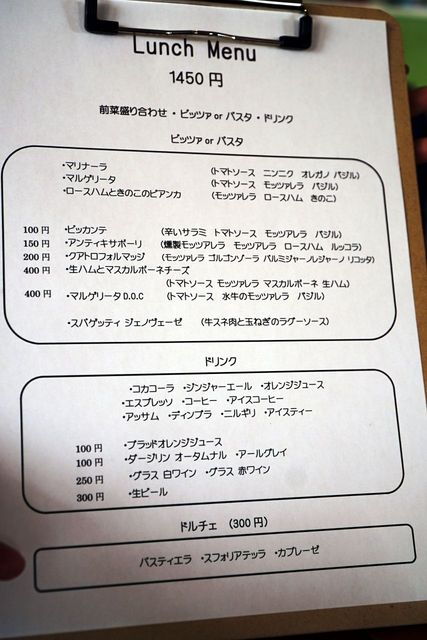 Lunch Menu
1450 円
前菜盛り合わせ ・ ピッツァ or パスタ ・ ドリンク
ピッツァ or パスタ
・マリナーラ (トマトソース ニンニク オレガノ バジル)
・マルゲリータ (トマトソース モッツァレラ バジル)
・ロースハムときのこのビアンカ (モッツァレラ ロースハム きのこ)
100 円 ・ピッカンテ (辛いサラミ トマトソース モッツァレラ バジル)
150 円 ・アンティキサポーリ (燻製モッツアレラ モッツアレラ ロースハム ルッコラ)
200 円 ・クアトロフォルマッジ (モッツァレラ ゴルゴンゾーラ パルミジャーノレジャーノ リコッタ)
400 円 ・生ハムとマスカルポーネチーズ
(トマトソース モッツァレラ マスカルポーネ 生ハム)
400 円 ・マルゲリータ D.O.C (トマトソース 水牛のモッツァレラ バジル)
・スパゲッティ ジェノヴェーゼ (牛スネ肉と玉ねぎのラグーソース)
ドリンク
・コカコーラ ・ジンジャーエール ・オレンジジュース
・エスプレッソ ・コーヒー ・アイスコーヒー
・アッサム ・ディンブラ ・ニルギリ ・アイスティー
100 円 ・ブラッドオレンジジュース
100 円 ・ダージリン オータムナル ・アールグレイ
250 円 ・グラス 白ワイン ・グラス 赤ワイン
300 円 ・生ビール
ドルチェ (300 円)
パスティエラ ・スフォリアテッラ ・カプレーゼ